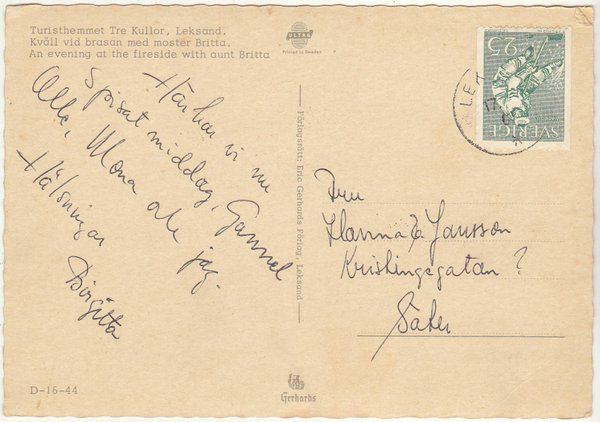 Turisthemmet Tre Kullor, Leksand.
Kväll vid brasan med moster Britta.
An evening at the fireside with aunt Britta
ULTRA
Printed in Sweden
25
SVERIGE
LE
17
Här har vi nu
spisat middag, Gunnel
Olle, Mona och jag.
Hälsningar
Birgitta
Förlagsrätt: Eric Gerhards Förlag, Leksand
Fru
Hanna Jansson
?
Säter
D-16-44
Gerhards